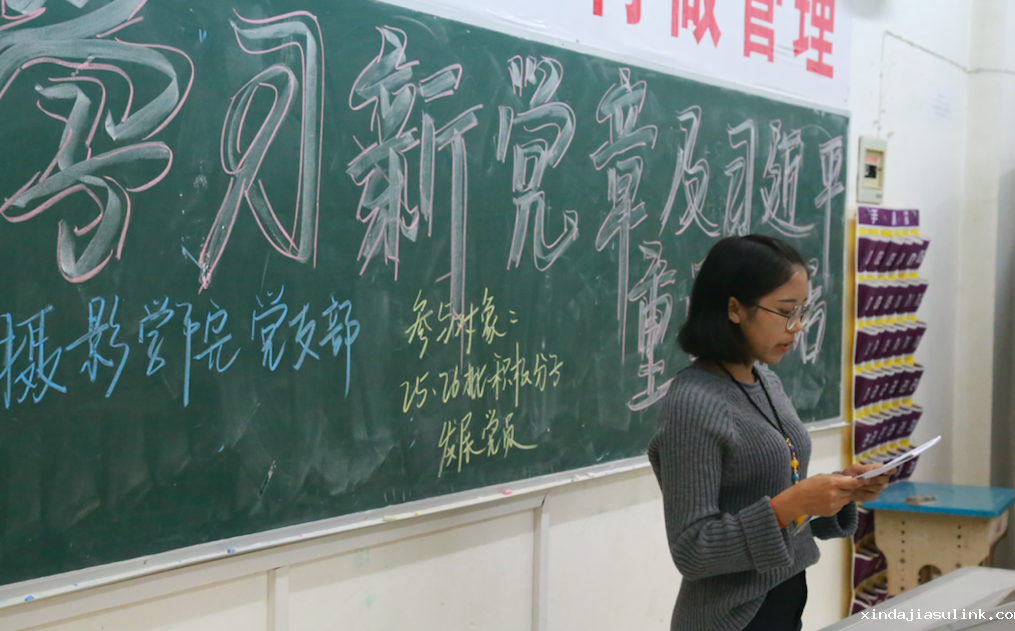 做管理
学习新党章及习近平
重
摄影学院党支部
参与对象：
25、26批积极分子
发展党员
xindajiasulink.co